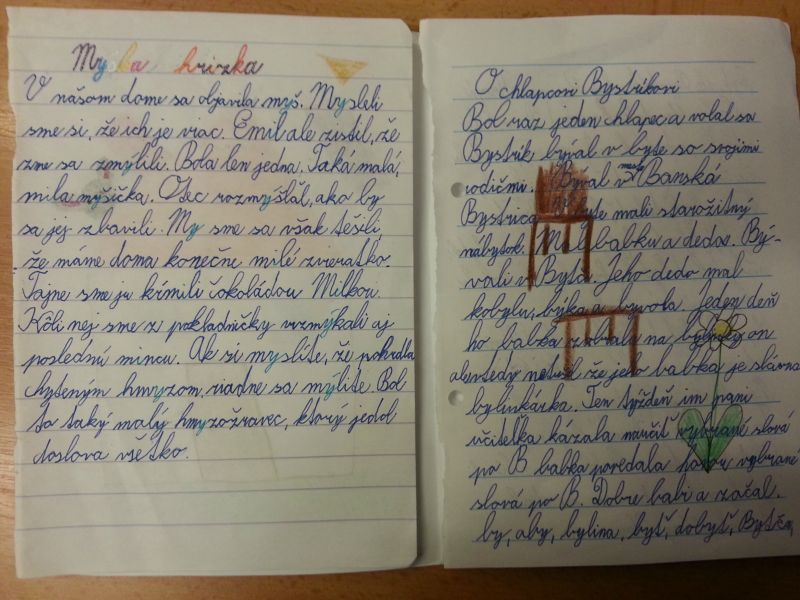 Myška hrizka
V našom dome sa objavila myš. Mysleli
sme si, že ich je viac. Emil ale zistil, že
zme sa zmýlili. Bola len jedna. Taká malá,
milá myšička. Otec rozmýšľal, ako by
sa jej zbavili. My sme sa však tešili,
že máme doma konečne milé zvieratko.
Tajne sme ju kŕmili čokoládou Milkou.
Kôli nej sme z pokladničky vyzmýkali aj
poslednú mincu. Ak si myslíte, že pohrdla
chyteným hmyzom, riadne sa mýlite. Bol
to taký malý hmyzožravec, ktorý jedol
doslova všetko.
O chlapcovi Bystríkovi
Bol raz jeden chlapec a volal sa
Bystrík býval v byte so svojimi
rodičmi. Býval v meste Banská
Bystrica. V byte mali starožitný
nábytok. Mal babku a dedos. Bý-
vali v Bytči. Jeho dedo mal
kobylu, býka a byvola. Jeden deň
ho babka zavolala na bylinky on
ale vtedy netušil že jeho babka je slávna
bylinkárka. Ten týždeň im pani
učiteľka kázala naučiť vybrané slová
po B babka povedala povou vybrané
slová po B. Dobre babi a začal.
by, aby, bylina, byť, dobyť, Bytča,